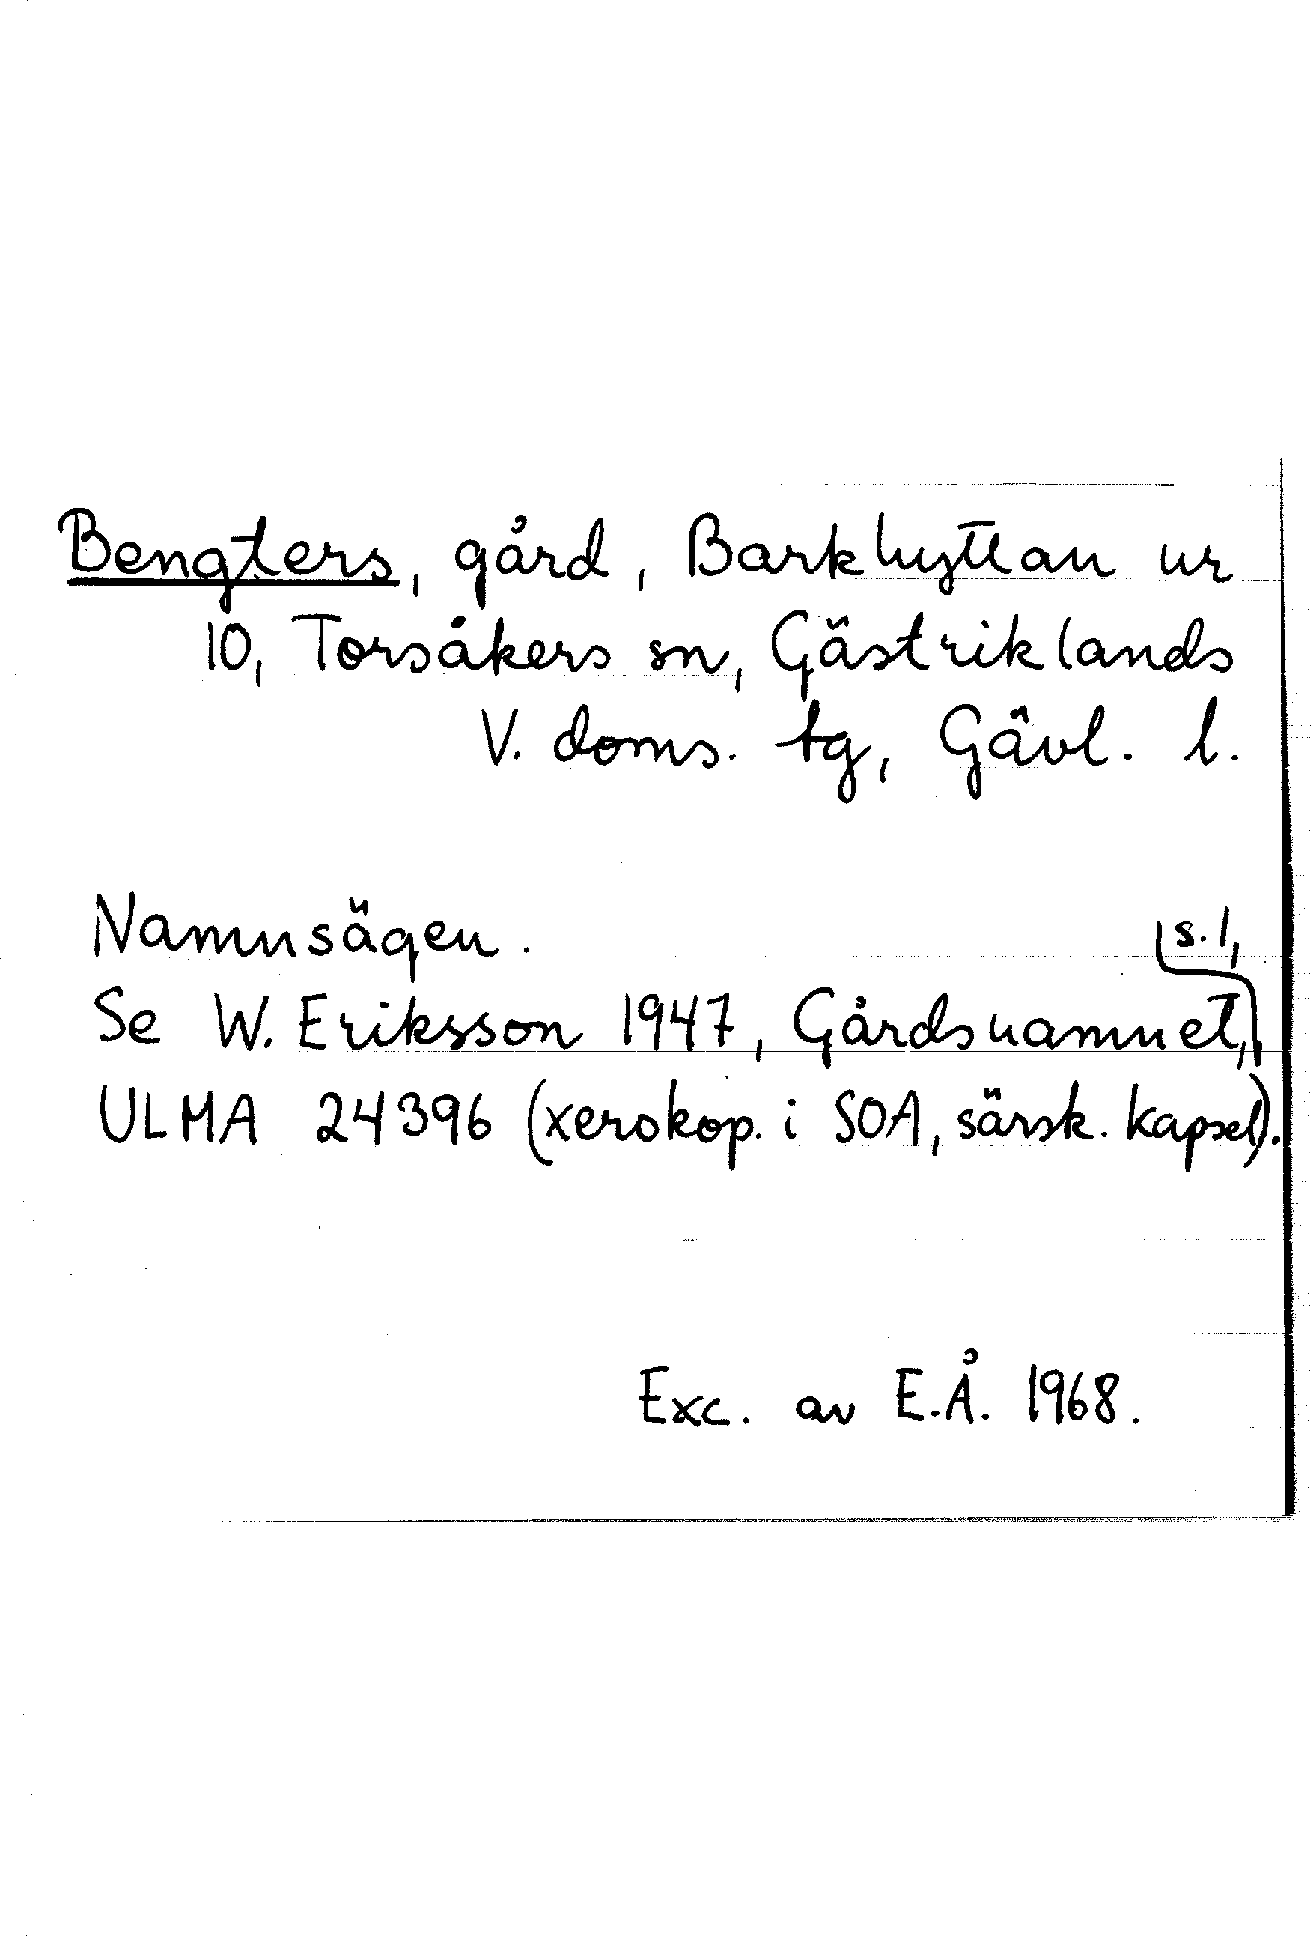 Bengters, gård, Barkhyttan nr
10, Torsåkers sn, Gästriklands
V. doms. tg, Gävl. l.
Namnsägen.
Se W. Eriksson 1947, Gårdsnamnet, s. 1,
ULMA 24396 (xerokop. i SOA, särsk. kapsel).
Exc. av E.Å. 1968.